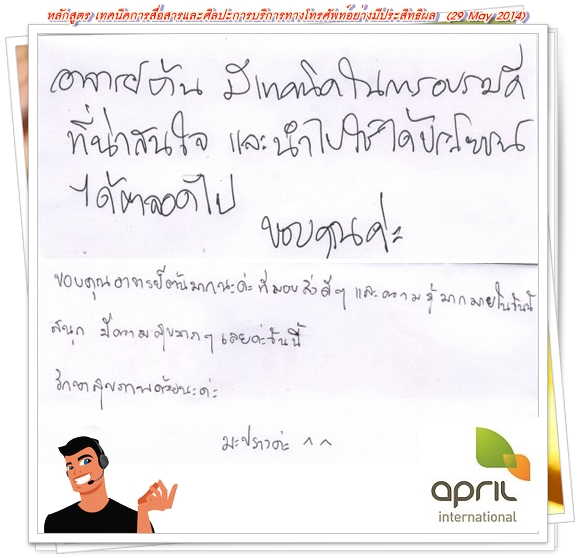 หลักสูตร เทคนิคการสื่อสารและศิลปะการบริการทางโทรศัพท์อย่างมีประสิทธิผล (29 May 2014)
อาจารย์ต้น มีเทคนิคในการอบรมที่ดี
ที่น่าสนใจ และนำไปใช้ได้ประโยชน์
ได้ตลอดไป
ขอบคุณค่ะ
ขอบคุณอาจารย์ต้นมากนะค่ะ ที่มอบสิ่งดีๆ และความรู้มากมายในวันนี้
สนุก มีความสุขมากๆ เลยค่ะวันนี้
รักษาสุขภาพด้วยนะค่ะ
มะปรางค่ะ ^^
april
international